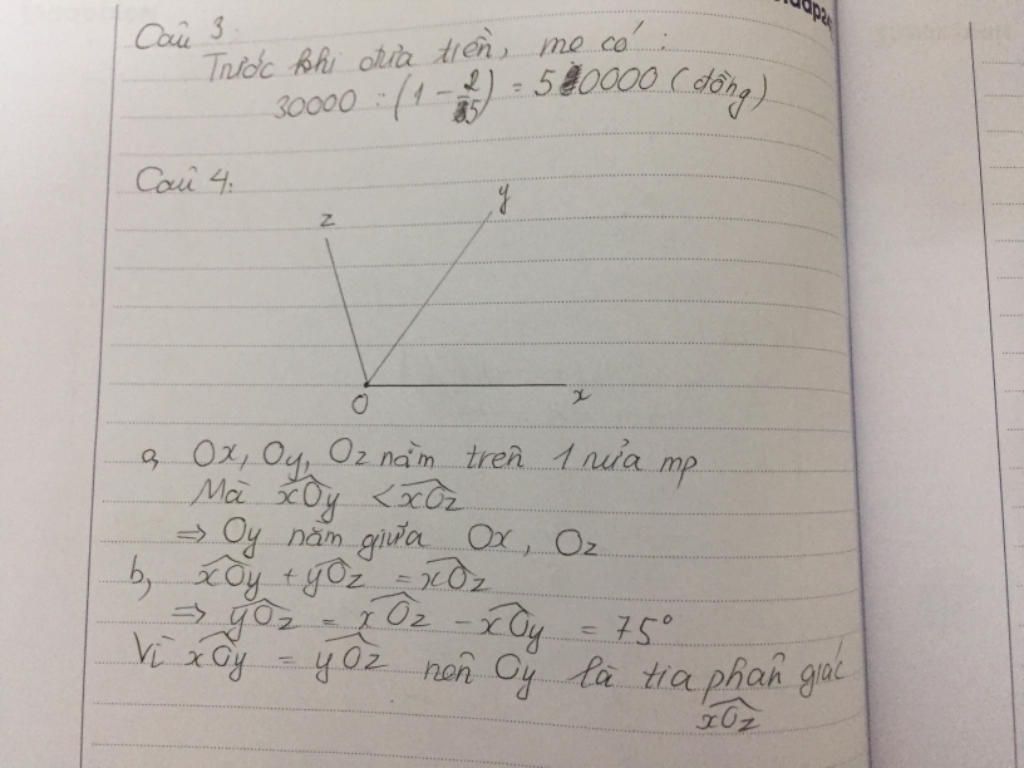 Câu 3:
Trước khi đưa tiền, mẹ có:
30000 : (1 - 2/5) = 50000 (đồng)
Câu 4:
z
y
O
x
a, Ox, Oy, Oz nằm trên 1 nửa mp
Mà xÔy < xÔz
⇒ Oy nằm giữa Ox, Oz
b, xÔy + yÔz = xÔz
⇒ yÔz = xÔz - xÔy = 75°
Vì xÔy = yÔz nên Oy là tia phân giác
xÔz